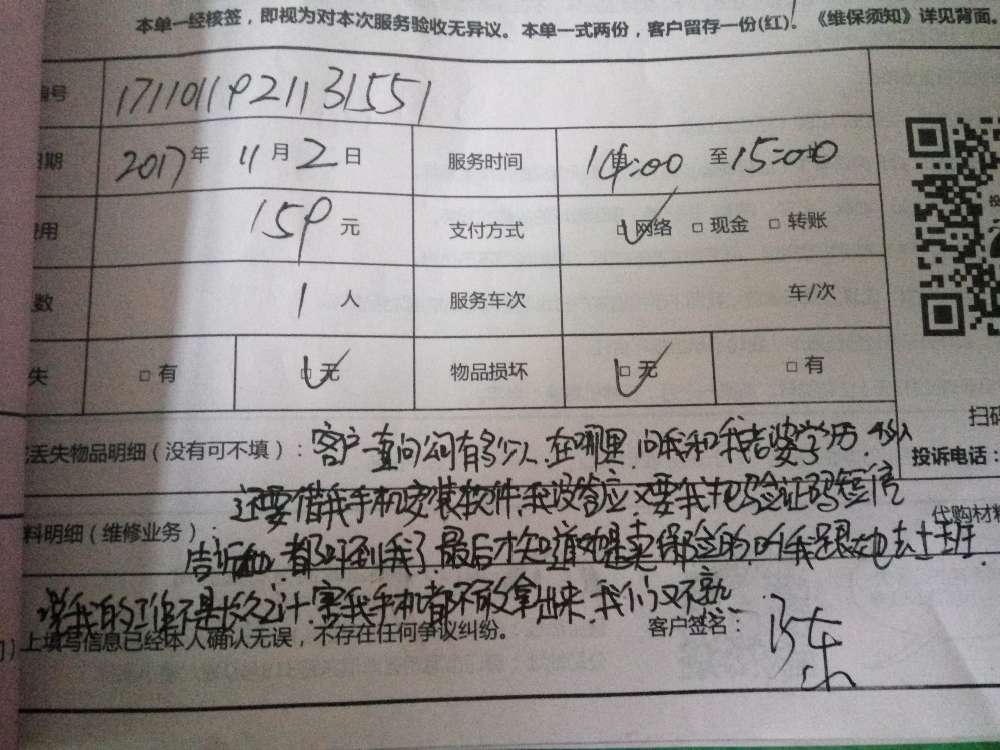 本单一经核签，即视为对本次服务验收无异议。本单一式两份，客户留存一份(红)。《维保须知》详见背面。
编号 1711011921131551
日期 2017年 11月2日 服务时间 14:00 至 15:00
费用 159 元 支付方式 □ 网络 □ 现金 □ 转账
数 1 人 服务车次 车/次
失 □ 有 □ 无 物品损坏 □ 无 □ 有
扫码
丢失物品明细（没有可不填）： 客户一直问公司有多少人.在哪里.问我和我老婆学历.
投诉电话：
还要借我手机安装软件我没答应.又要我把验证码短信
代购材料
料明细（维修业务）： 告诉她.都吓到我了.最后才知道她是卖保险的.叫我跟她去上班
说我的工作不是长久之计.害我手机都不敢拿出来.我们又不熟
上填写信息已经本人确认无误，不存在任何争议纠纷。 客户签名：